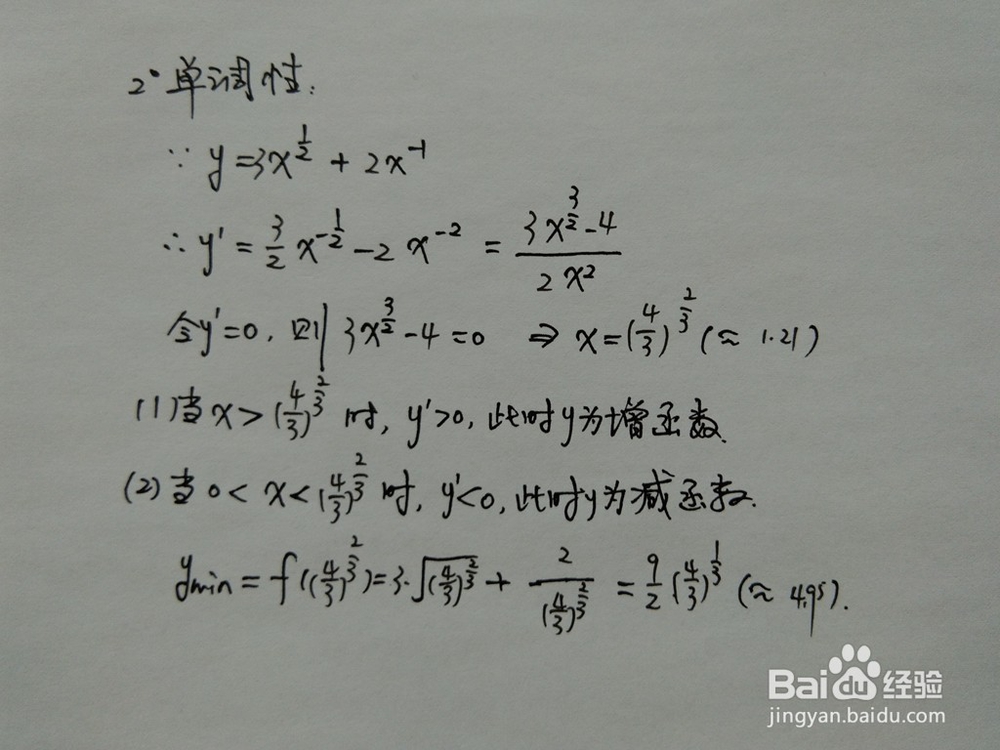 2° 单调性:
∵ y=3x^{1/2} + 2x^{-1}
∴ y' = 3/2 x^{-1/2} - 2 x^{-2} = (3x^{3/2}-4)/(2x^2)
令y'=0, 则 3x^{3/2}-4=0 ⇒ x=(4/3)^{2/3} (≈ 1.21)
(1)当x>(4/3)^{2/3} 时, y'>0, 此时y为增函数.
(2)当 0<x<(4/3)^{2/3} 时, y'<0, 此时y为减函数.
y_{min} = f((4/3)^{2/3})=3·√((4/3)^{2/3}) + 2/((4/3)^{2/3}) = 9/2 (4/3)^{1/3} (≈ 4.95).
Baidu 经验
jingyan.baidu.com